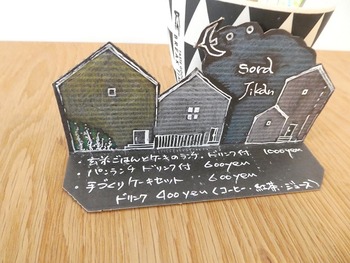 sora
Jikan
玄米ごはんとケーキのランチ、ドリンク付 1000yen
・パンランチ ドリンク付 600yen
・手づくりケーキセット 600yen
ドリンク 400yen (コーヒー・紅茶・ジュース)